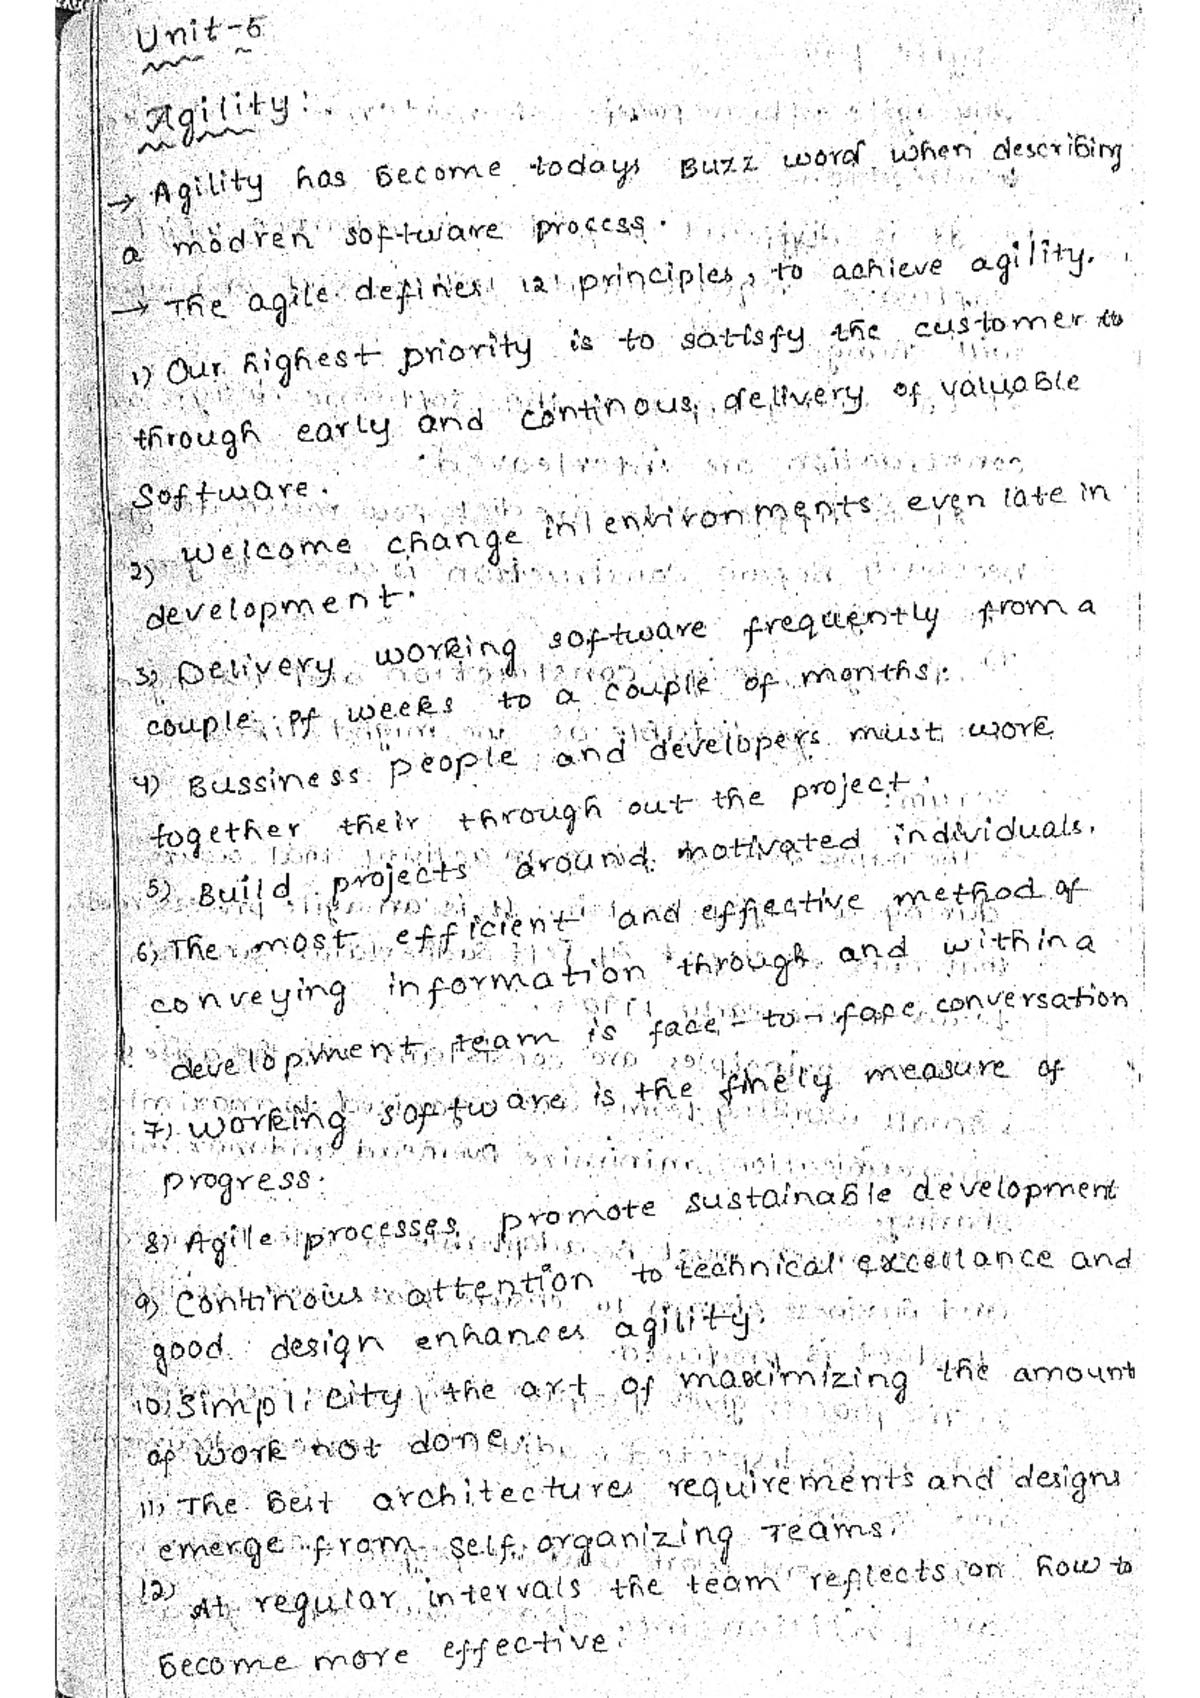 Unit-5
Agility:
→ Agility has become todays Buzz word when describing
a modren software process.
→ The agile defines 12 principles, to achieve agility.
1) Our highest priority is to satisfy the customer to
through early and continous, delivery of valuable
Software.
2) Welcome change in environments even late in
development.
3) Delivery working software frequently from a
couple of weeks to a couple of months.
4) Bussiness people and developers must work
together their through out the project.
5) Build projects around motivated individuals.
6) The most efficient and effective method of
conveying information through and within a
development team is face-to-face conversation
7) Working software is the finely measure of
progress.
8) Agile processes promote sustainable development
9) Continous attention to technical excellance and
good design enhances agility.
10) Simplicity the art of maximizing the amount
of work not done.
11) The Best architectures requirements and designs
emerge from self organizing Teams.
12) At regular intervals the team reflects on how to
become more effective.